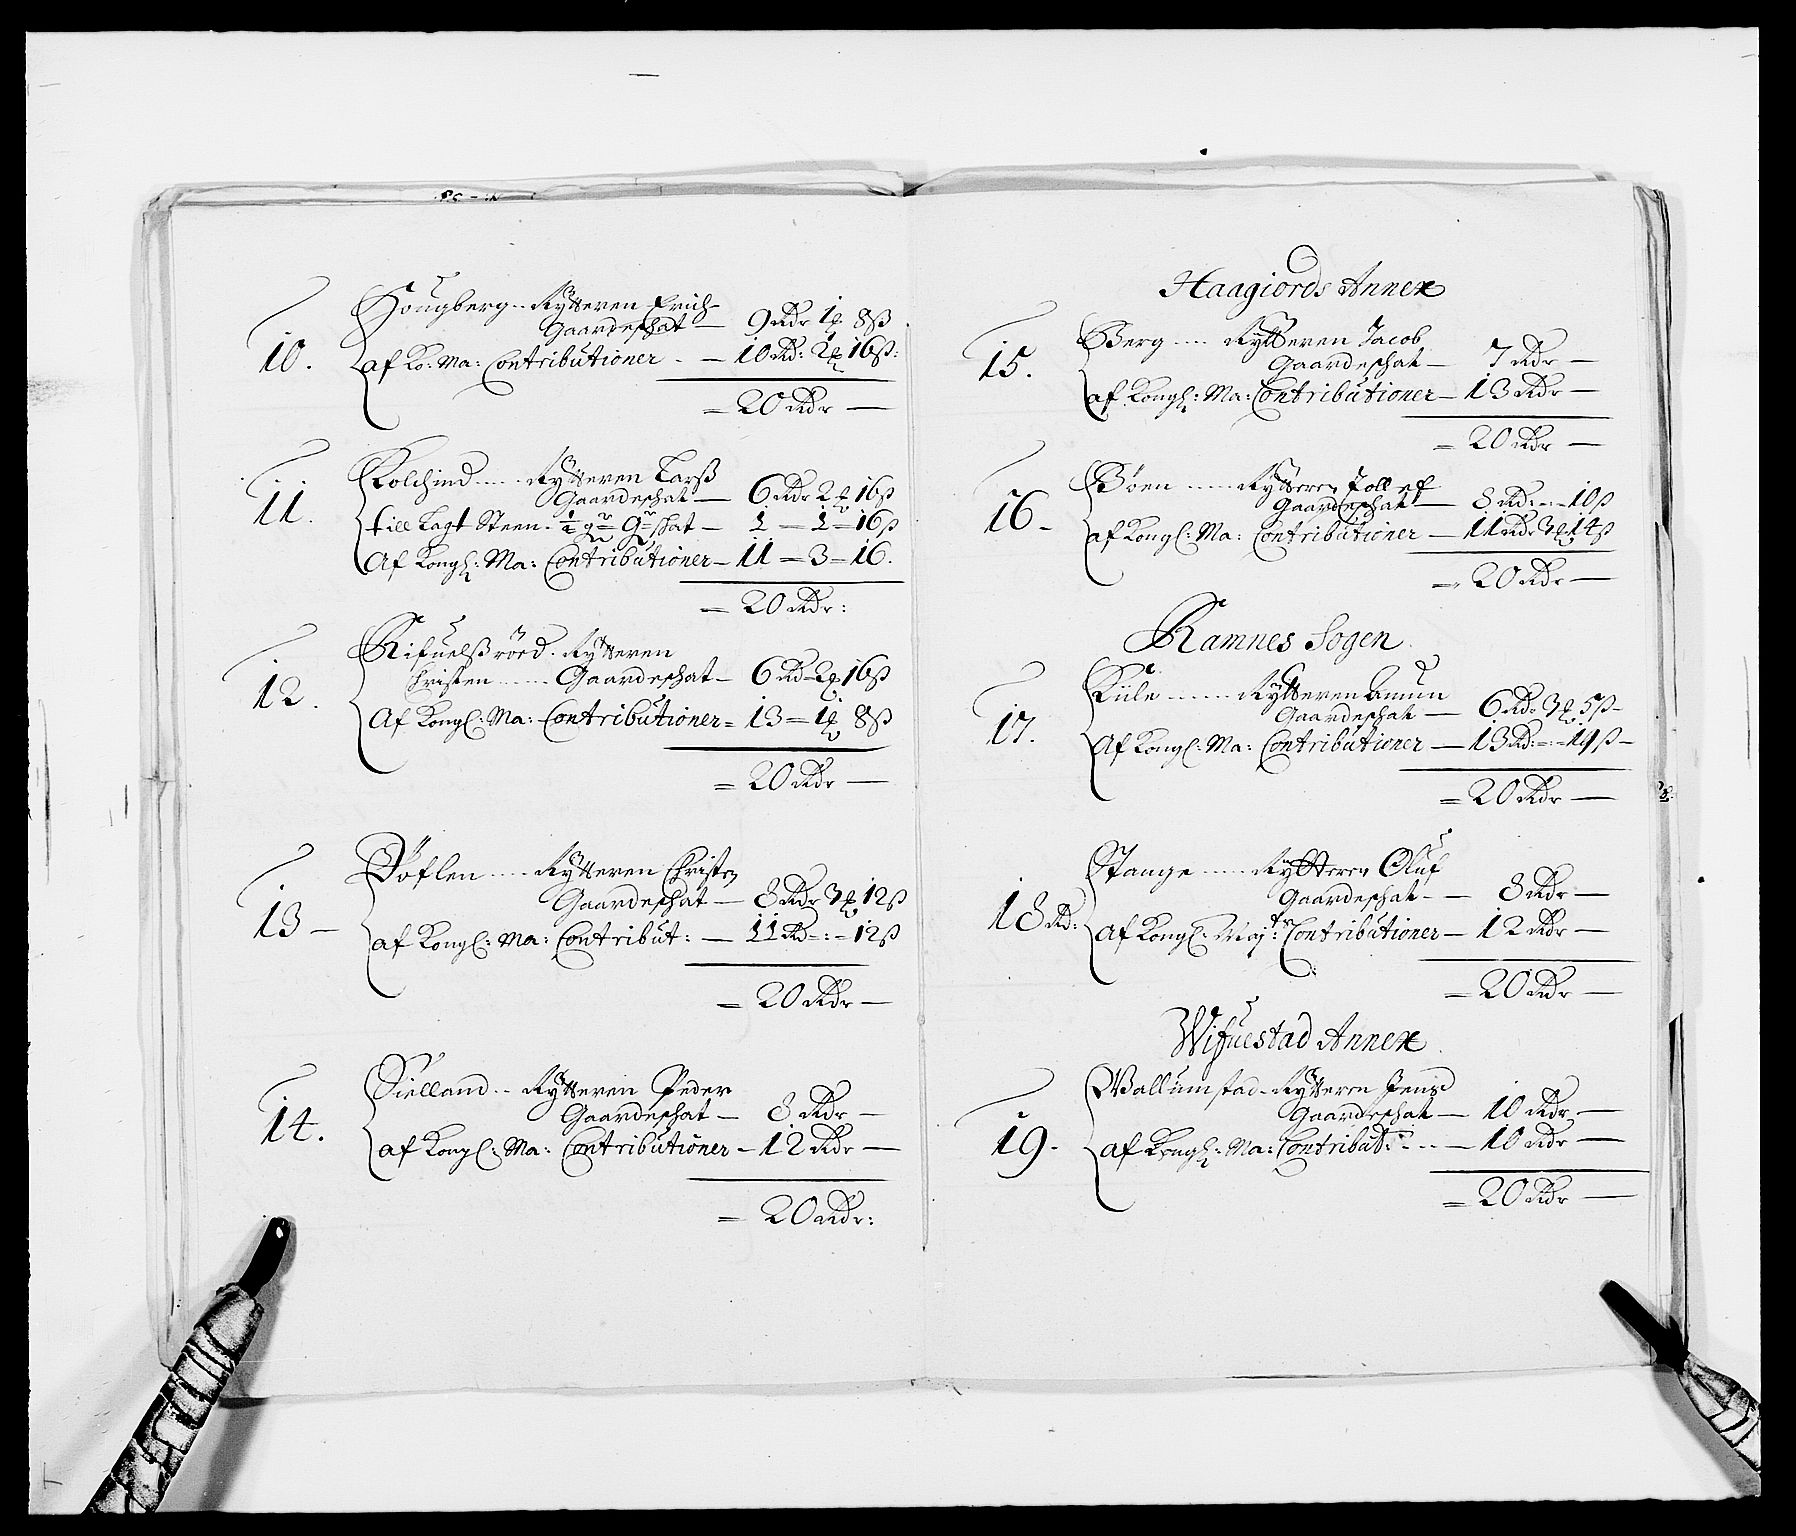 10. Hougberg -- Rÿtteren Erich
Gaardeschat — 9 Rdr 1 ₰ 8ß
af Ko: Ma: Contributioner - — 10 Rd: 2₰ 16ß:
= 20 Rdr —
11. Kolchind ---- Rÿtteren Larß
Gaardeschat — 6 Rdr 2₰ 16ß
till Lagt Steen - schat — 1 = 1 = 16ß
Af Kongl: Ma: Contributioner — 11 = 3 = 16.
= 20 Rdr:
12. Rifuelßröed. Rÿtteren
Christen ---- Gaardeschat — 6 Rd - 2₰ 16ß
Af Kongl: Ma: Contributioner = 13 = 1₰ 8ß
= 20 Rdr —
13 — Döflen ---- Rÿtteren Christen
Gaardeschat — 8 Rdr 3₰ 12ß
af Kongl: Ma: Contribut: — 11 Rd -:- 12ß
= 20 Rdr —
14. Sielland -- Rÿtteren Peder
Gaardeschat — 8 Rdr —
af Kongl: Ma: Contributioner — 12 Rdr —
= 20 Rdr:
Haagiords Annex
15. Berg ---- Rÿtteren Jacob
Gaardeschat — 7 Rdr —
af Kongl: Ma: Contributioner — 13 Rdr —
= 20 Rdr —
16 - Böen ---- Rÿtteren Tollef
Gaardeschat — 8 Rd: -:- 10ß
af Kongl: Ma: Contributioner — 11 Rdr 3₰ 14ß
= 20 Rdr —
Ramnes Sogen
17. Kiile ---- Rÿtteren Amun
Gaardeschat — 6 Rdr 3₰ 5ß —
Af Kongl: Ma: Contributioner — 13 Rd: -:- 19ß —
= 20 Rdr —
18 Rd: Stange ---- Rÿtteren Oluf
Gaardeschat - — 8 Rdr —
af Kongl: Maj: Contributioner — 12 Rdr —
= 20 Rdr —
Wifuestad Annex
19 - Wallumstad - Rÿtteren Jens
Gaardeschat — 10 Rdr —
af Kongl: Ma: Contribut: - - - — 10 Rdr —
= 20 Rdr —